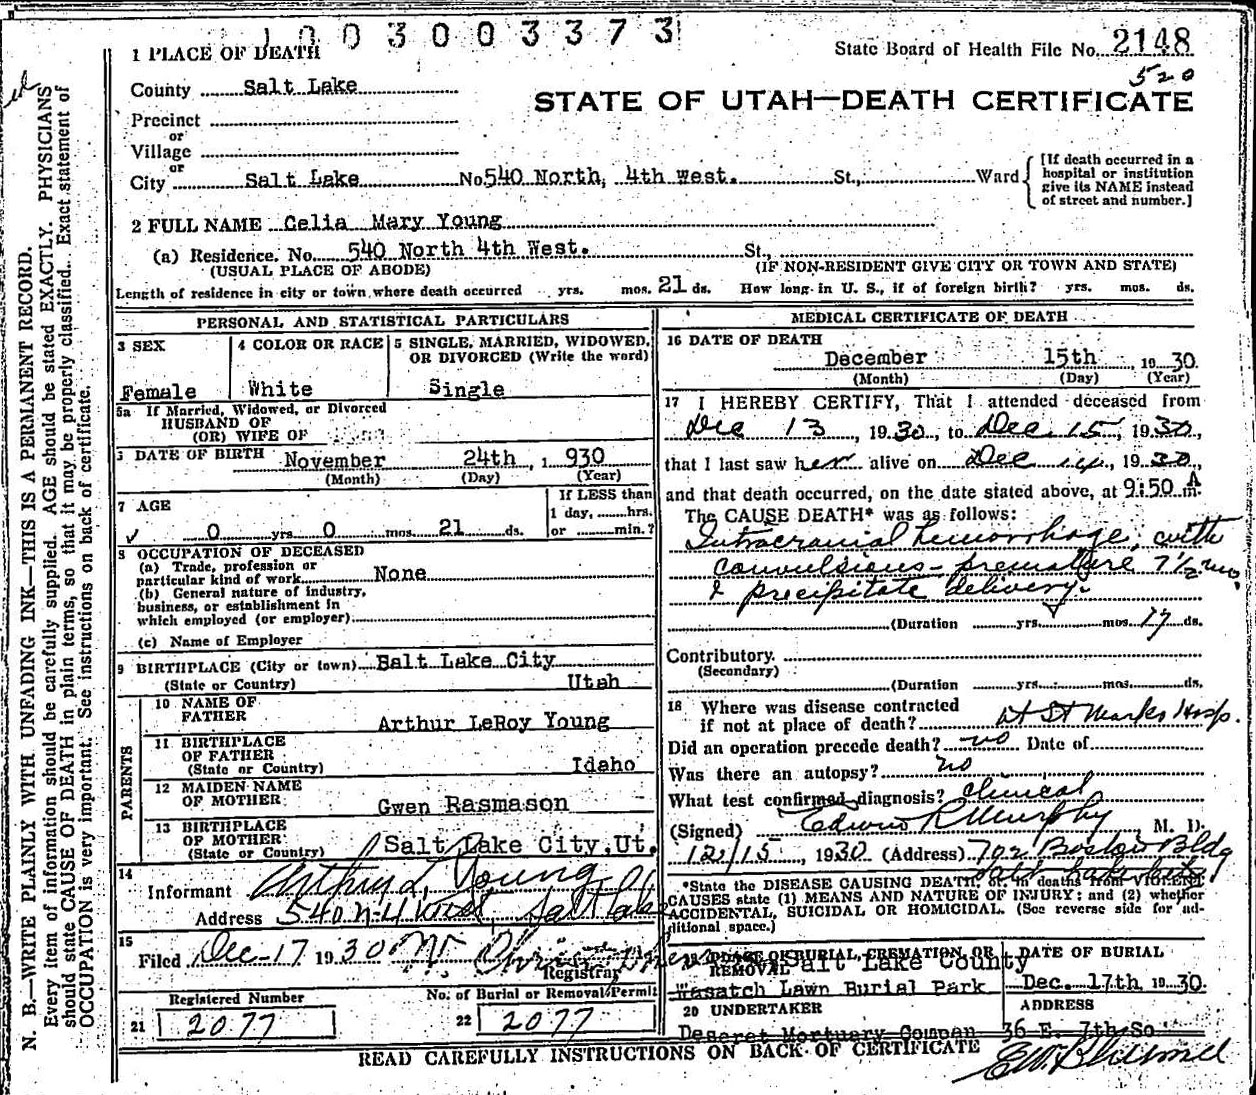 1003003373
1 PLACE OF DEATH
State Board of Health File No. 2148
520
County Salt Lake
STATE OF UTAH—DEATH CERTIFICATE
Precinct
or
Village
or
City Salt Lake No. 540 North, 4th West. St., Ward
[If death occurred in a hospital or institution give its NAME instead of street and number.]
2 FULL NAME Celia Mary Young
(a) Residence. No. 540 North 4th West. St.,
(USUAL PLACE OF ABODE) (IF NON-RESIDENT GIVE CITY OR TOWN AND STATE)
Length of residence in city or town where death occurred yrs. mos. 21 ds. How long in U. S., if of foreign birth? yrs. mos. ds.
PERSONAL AND STATISTICAL PARTICULARS
3 SEX
Female
4 COLOR OR RACE
White
5 SINGLE, MARRIED, WIDOWED, OR DIVORCED (Write the word)
Single
5a If Married, Widowed, or Divorced
HUSBAND OF
(OR) WIFE OF
6 DATE OF BIRTH November 24th, 1930
(Month) (Day) (Year)
7 AGE
0 yrs. 0 mos. 21 ds.
If LESS than
1 day, hrs.
or min.?
8 OCCUPATION OF DECEASED
(a) Trade, profession or
particular kind of work None
(b) General nature of industry,
business, or establishment in
which employed (or employer)
(c) Name of Employer
9 BIRTHPLACE (City or town) Salt Lake City
(State or Country) Utah
PARENTS
10 NAME OF
FATHER Arthur LeRoy Young
11 BIRTHPLACE
OF FATHER
(State or Country) Idaho
12 MAIDEN NAME
OF MOTHER Gwen Rasmason
13 BIRTHPLACE
OF MOTHER
(State or Country) Salt Lake City, Ut.
14
Informant Arthur L. Young
Address 540 N. 4 West, Salt Lake
15
Filed Dec-17 1930
Registrar
Registered Number
21 2077
No. of Burial or Removal Permit
22 2077
MEDICAL CERTIFICATE OF DEATH
16 DATE OF DEATH
December 15th, 1930
(Month) (Day) (Year)
17 I HEREBY CERTIFY, That I attended deceased from
Dec 13, 1930, to Dec. 15, 1930,
that I last saw her alive on Dec 14, 1930,
and that death occurred, on the date stated above, at 9:50 A m.
The CAUSE DEATH* was as follows:
Intracranial hemorrhage, with
convulsions - premature 7 1/2 mo.
& precipitate delivery.
(Duration yrs. mos. 17 ds.
Contributory.
(Secondary)
(Duration yrs. mos. ds.
18 Where was disease contracted
if not at place of death? At St Marks Hosp.
Did an operation precede death? no Date of
Was there an autopsy? no
What test confirmed diagnosis? clinical
(Signed) Edwin R Murphy, M. D.
12/15, 1930 (Address) 702 Boston Bldg
Salt Lake City
*State the DISEASE CAUSING DEATH, or, in deaths from VIOLENT
CAUSES state (1) MEANS AND NATURE OF INJURY; and (2) whether
ACCIDENTAL, SUICIDAL OR HOMICIDAL. (See reverse side for ad-
ditional space.)
19 PLACE OF BURIAL, CREMATION, OR
REMOVAL Salt Lake County
Wasatch Lawn Burial Park
DATE OF BURIAL
Dec. 17th, 1930.
20 UNDERTAKER
Deseret Mortuary Compan
ADDRESS
36 E. 7th So
READ CAREFULLY INSTRUCTIONS ON BACK OF CERTIFICATE
N. B.—WRITE PLAINLY WITH UNFADING INK—THIS IS A PERMANENT RECORD.
Every item of information should be carefully supplied. AGE should be stated EXACTLY. PHYSICIANS
should state CAUSE OF DEATH in plain terms, so that it may be properly classified. Exact statement of
OCCUPATION is very important. See instructions on back of certificate.